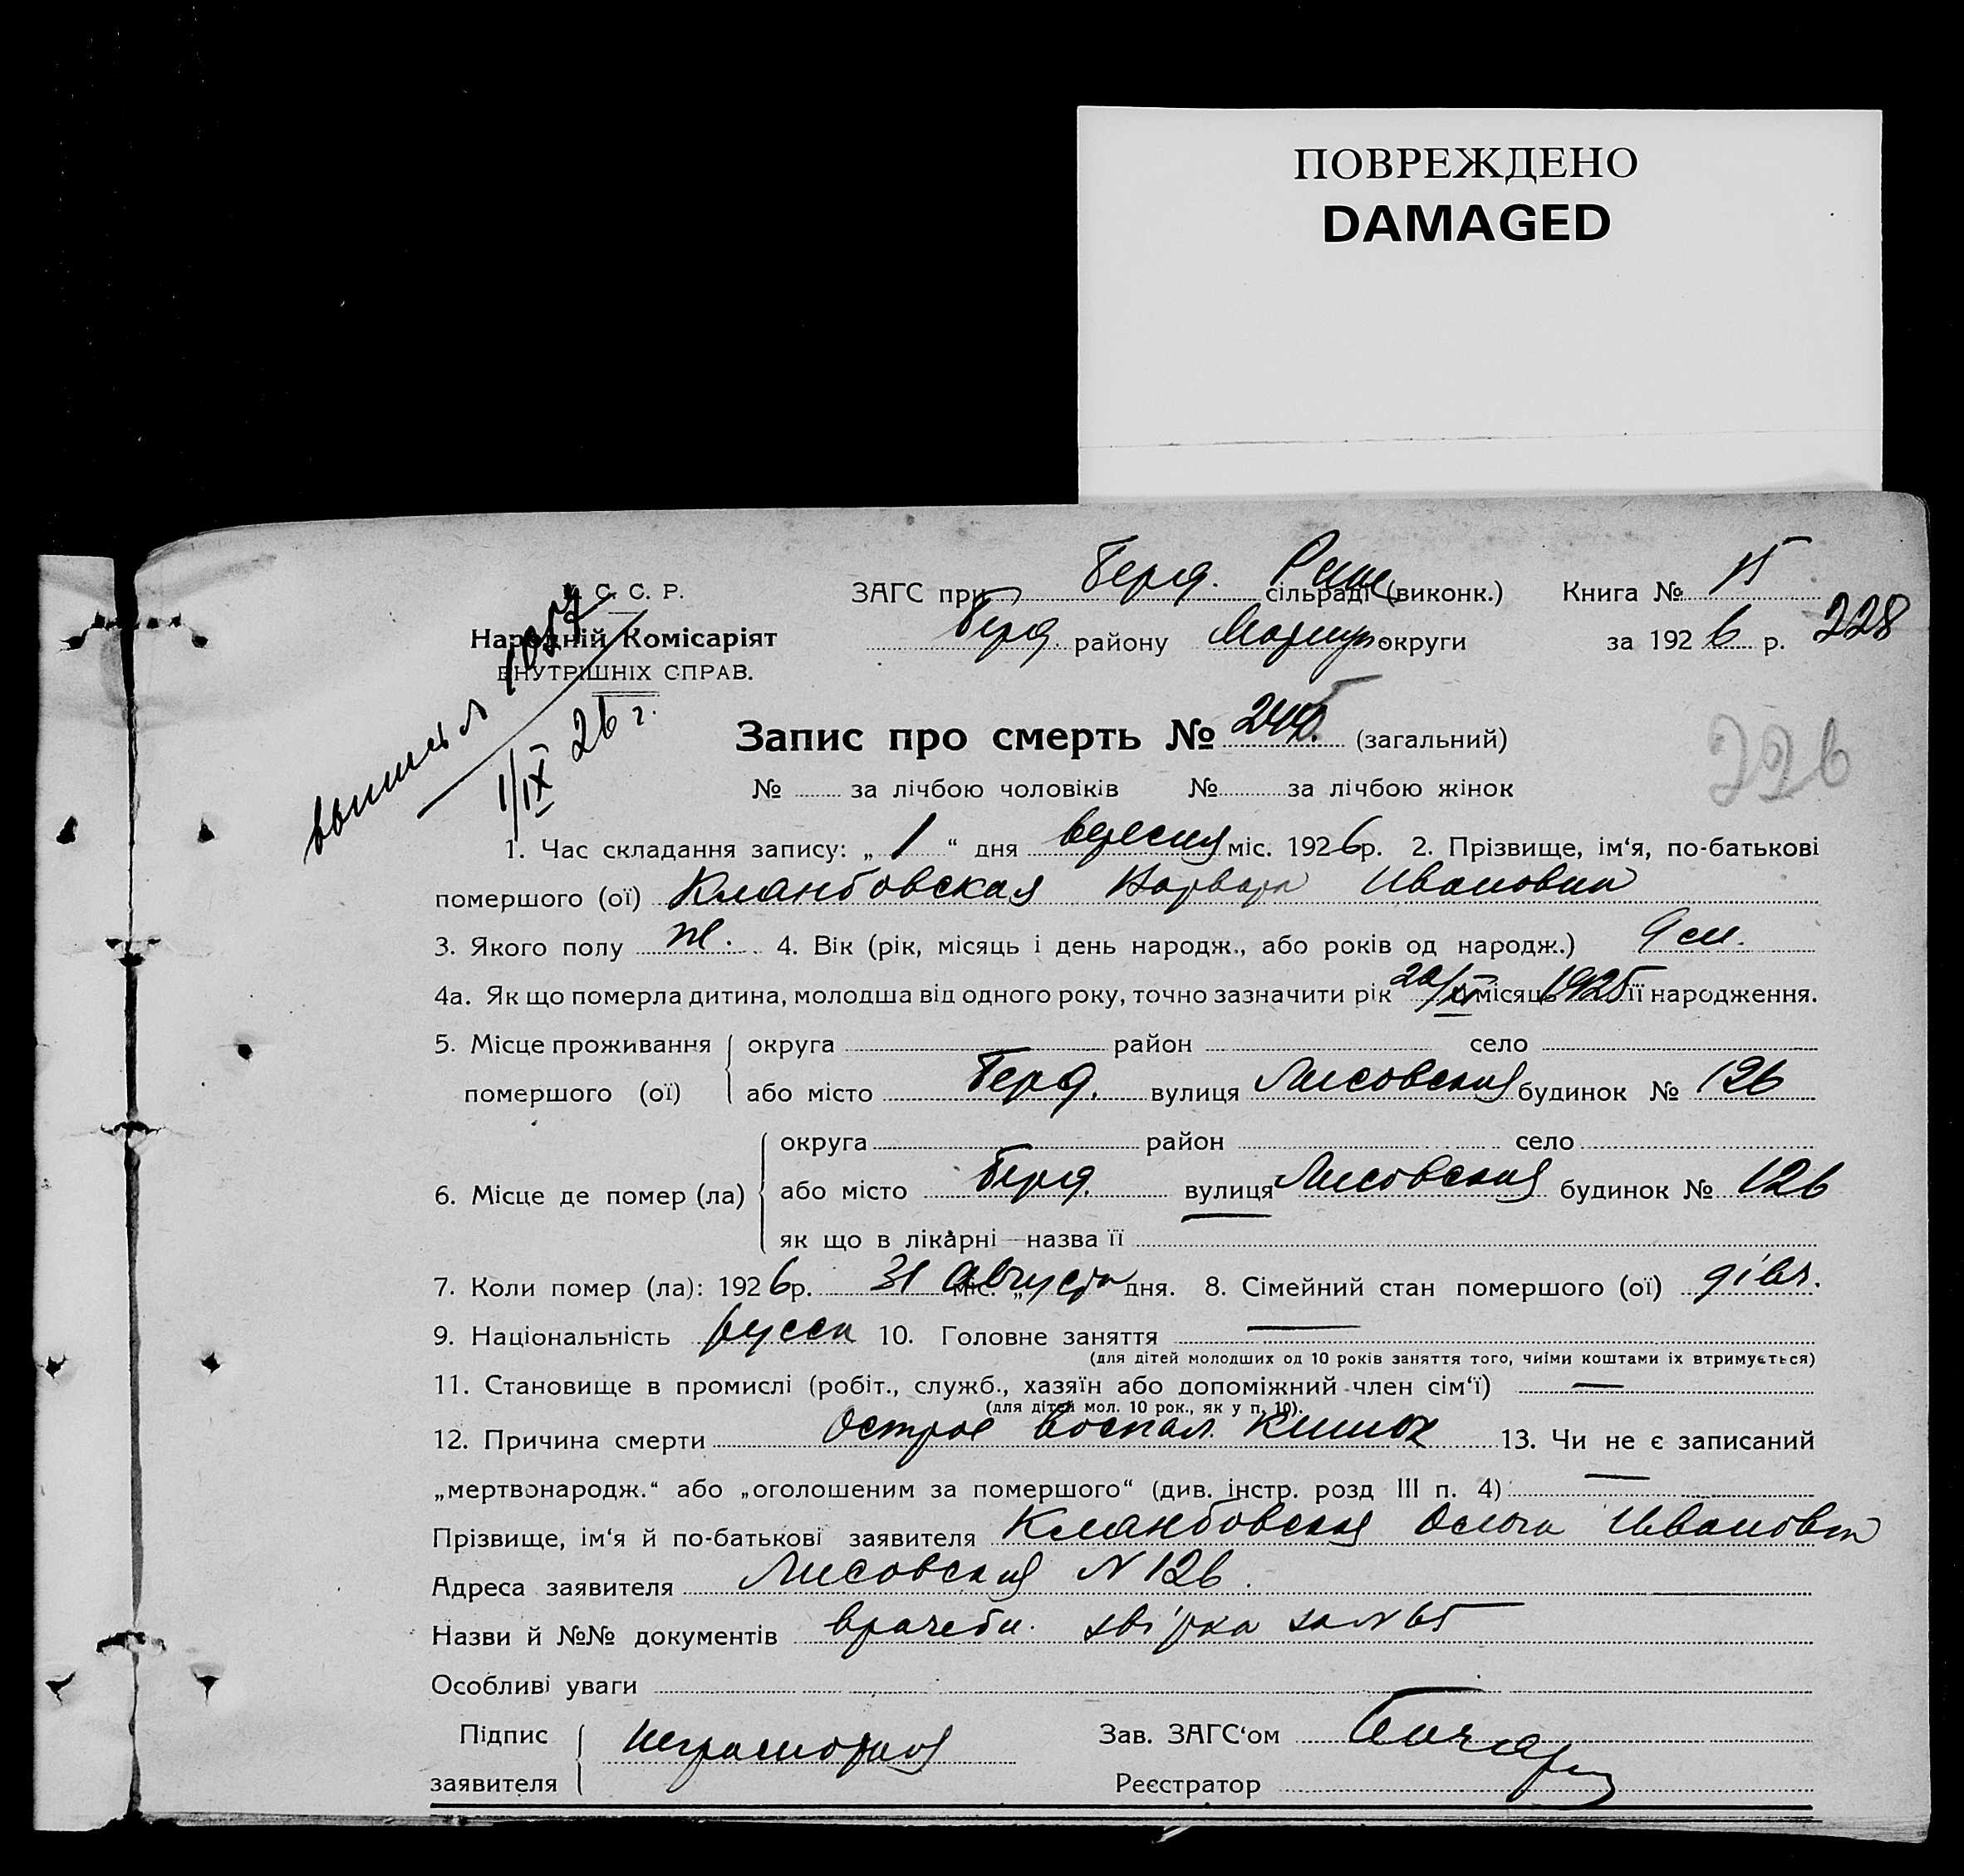 ПОВРЕЖДЕНО
DAMAGED
У. С. С. Р.
Народній Комісаріят
ВНУТРІШНІХ СПРАВ.
1/IX 26 г.
ЗАГС при Берд. сільраді (виконк.) Книга №
Берд. району Маріуп округи за 1926 р. 228
Запис про смерть № (загальний)
226
№ за лічбою чоловіків № за лічбою жінок
1. Час складання запису: „ 1 “ дня вересня міс. 1926р. 2. Прізвище, ім‘я, по-батькові
помершого (ої) Кланбовская Варвара Ивановна
3. Якого полу ж. 4. Вік (рік, місяць і день народж., або років од народж.) 9 м.
4а. Як що померла дитина, молодша від одного року, точно зазначити рік місяць 1925 її народження.
5. Місце проживання округа район село
помершого (ої) або місто Берд. вулиця Лисовская будинок № 126
округа район село
6. Місце де помер (ла) або місто Берд. вулиця Лисовская будинок № 126
як що в лікарні—назва її
7. Коли помер (ла): 1926р. 31 Августа міс. „ дня. 8. Сімейний стан помершого (ої) дівч.
9. Національність русск 10. Головне заняття —
(для дітей молодших од 10 років заняття того, чиїми коштами їх втримується)
11. Становище в промислі (робіт., служб., хазяїн або допоміжний член сім‘ї) —
(для дітей мол. 10 рок., як у п. 10).
12. Причина смерти Острое воспал. кишок 13. Чи не є записаний
„мертвонародж.“ або „оголошеним за помершого“ (див. інстр. розд III п. 4) —
Прізвище, ім‘я й по-батькові заявителя Кланбовская Ольга Ивановн
Адреса заявителя Лисовская N 126.
Назви й №№ документів врачебн. за N 65
Особливі уваги
Підпис Неграмотная Зав. ЗАГС‘ом
заявителя Реєстратор